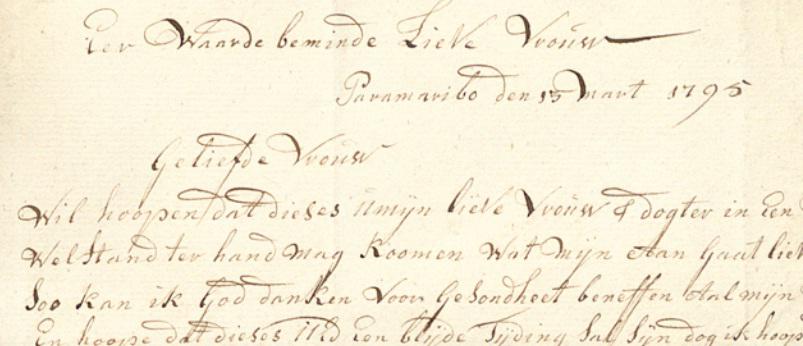 Eer Waarde beminde Lieve Vrouw
Paramaribo den 15 Mart 1795
Geliefde Vrouw
Wil hoopen dat dieses U mijn lieve Vrouw & dogter in Een
Welstand ter hand mag koomen Wat mijn Aan Gaat
Soo kan ik God danken Voor Gesondheet beneffen Aal mijn
En hoope dat dieses UEd Een blijde Tijding Sal Sijn dog ik